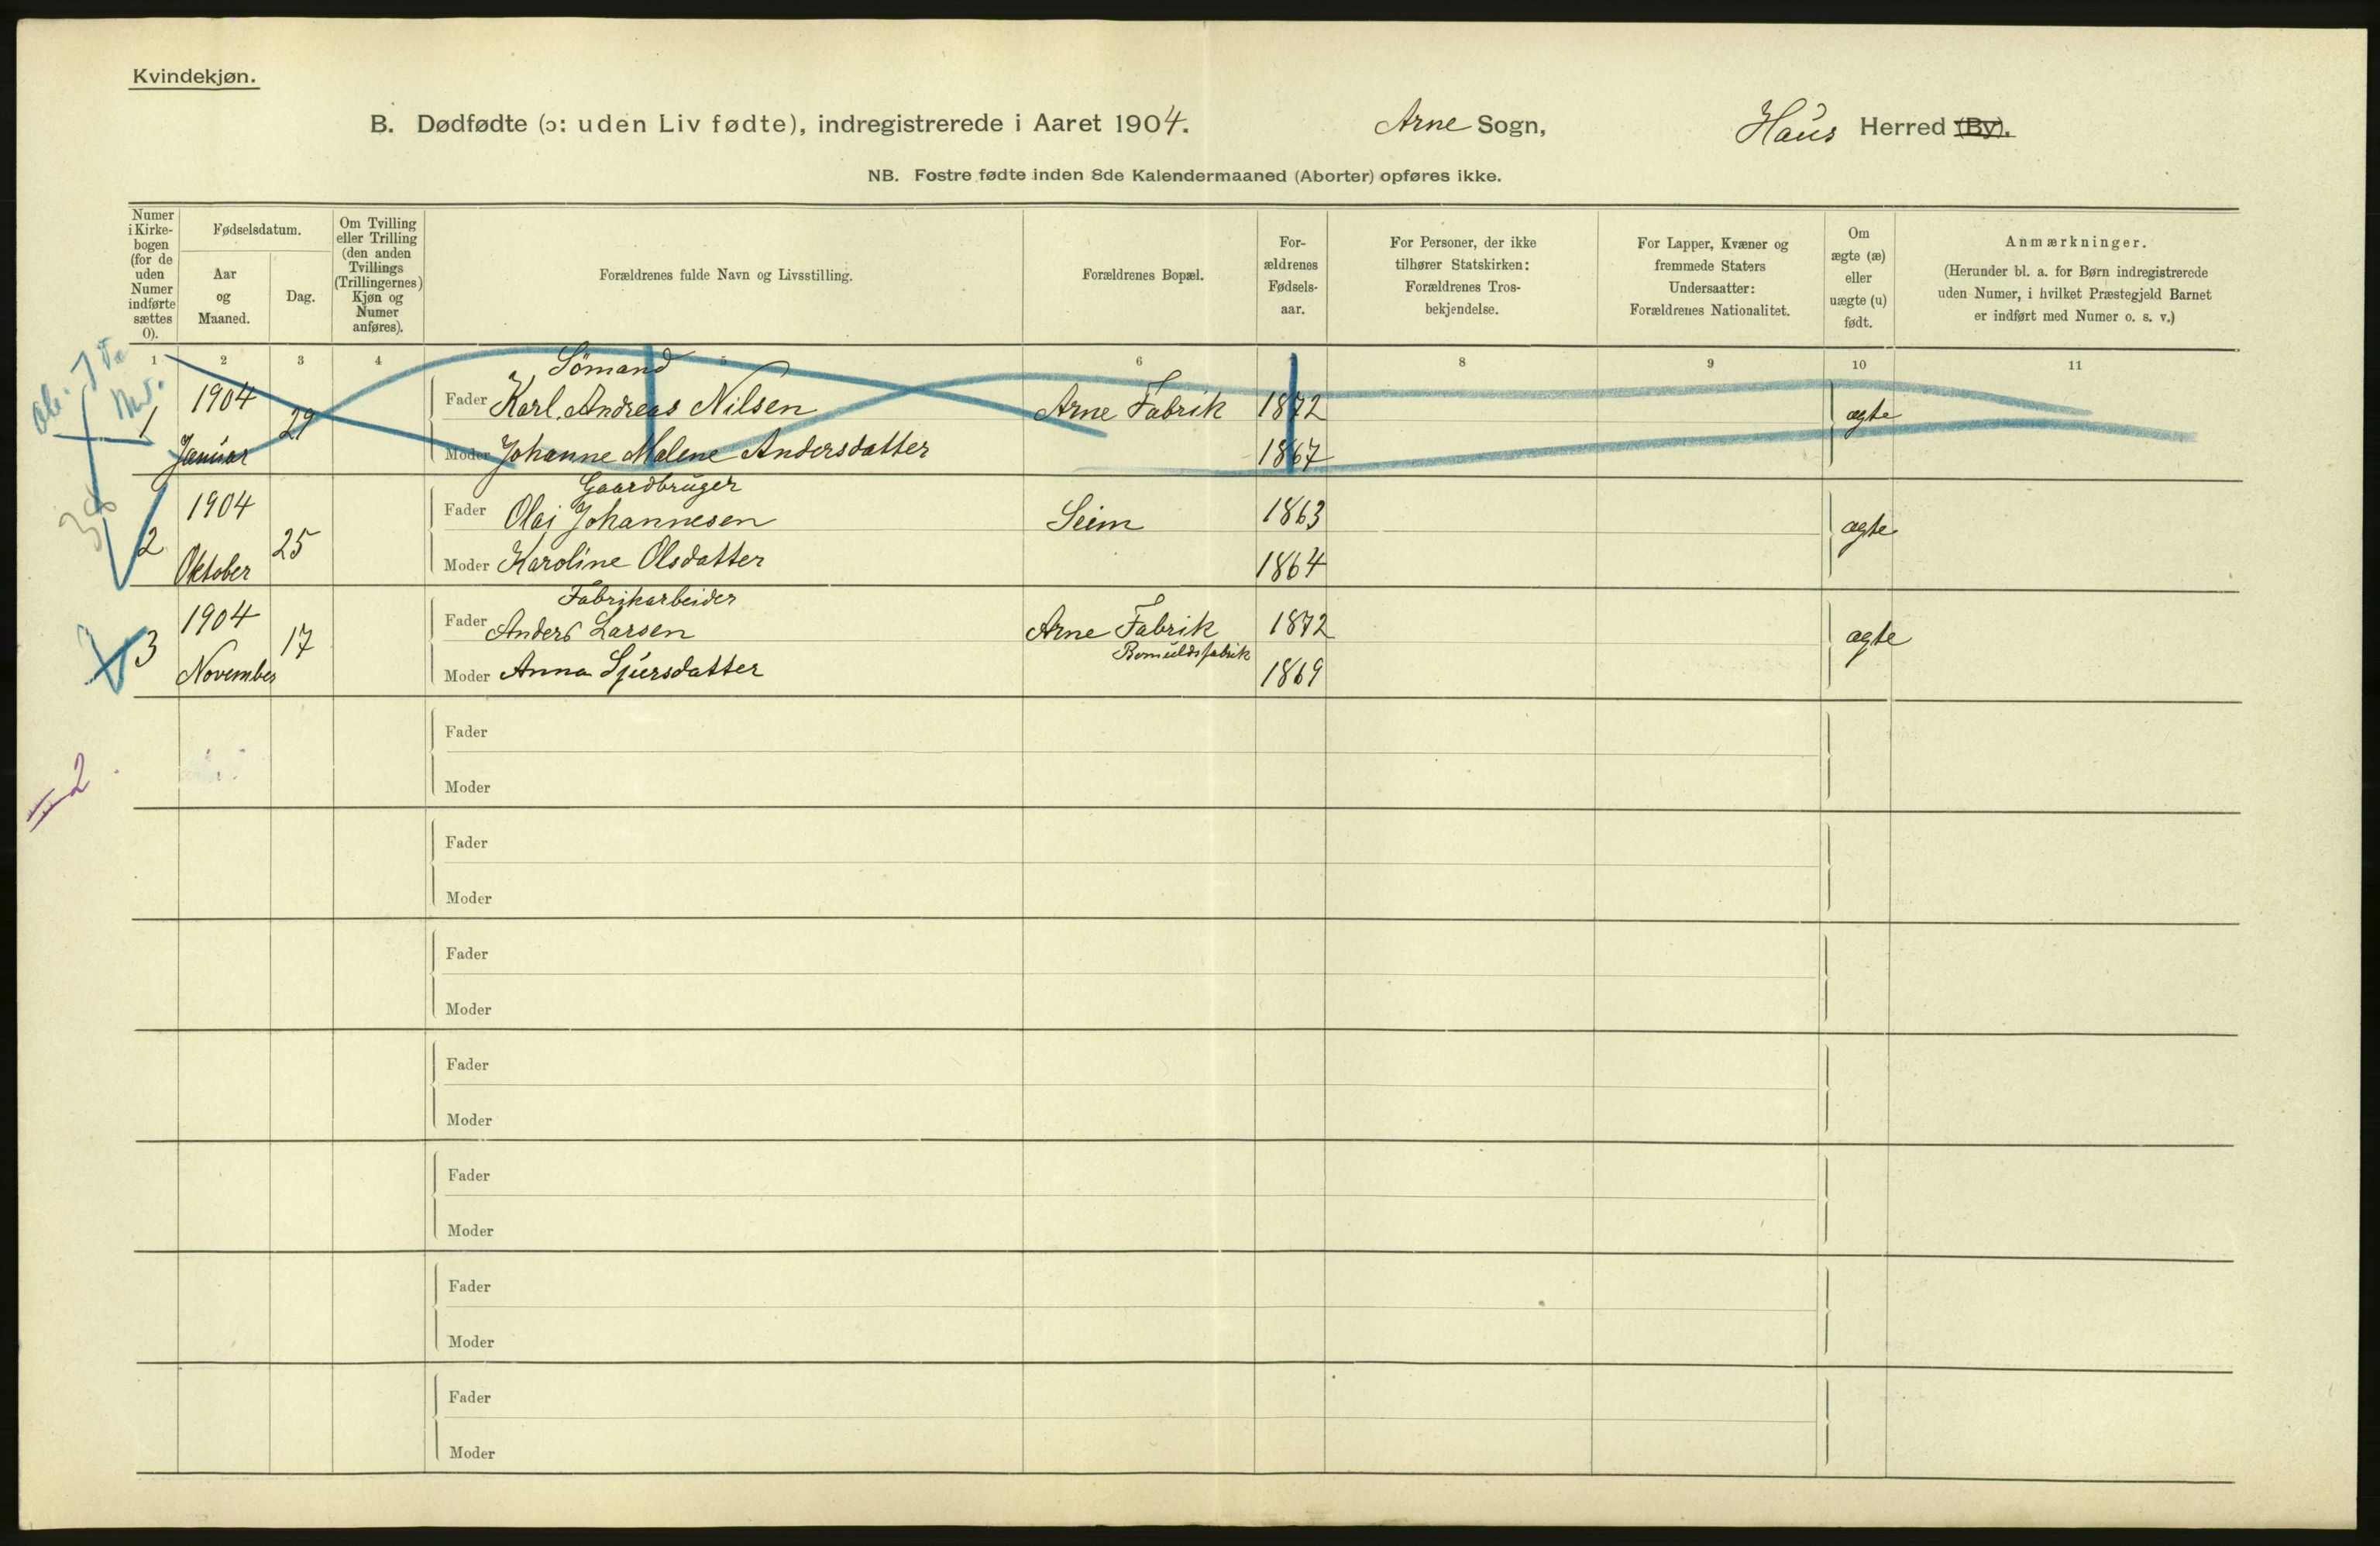 Kvindekjøn.
B. Dødfødte (ɔ: uden Liv fødte), indregistrerede i Aaret 1904. Arne Sogn, Haus Herred (By).
NB. Fostre fødte inden 8de Kalendermaaned (Aborter) opføres ikke.
Numer
i Kirke-
bogen
(for de
uden
Numer
indførte
sættes
0).
Fødselsdatum.
Aar
og
Maaned.
Dag.
Om Tvilling
eller Trilling
(den anden
Tvillings
(Trillingernes)
Kjøn og
Numer
anføres).
Forældrenes fulde Navn og Livsstilling.
Forældrenes Bopæl.
For-
ældrenes
Fødsels-
aar.
For Personer, der ikke
tilhører Statskirken:
Forældrenes Tros-
bekjendelse.
For Lapper, Kvæner og
fremmede Staters
Undersaatter:
Forældrenes Nationalitet.
Om
ægte (æ)
eller
uægte (u)
født.
Anmærkninger.
(Herunder bl. a. for Børn indregistrerede
uden Numer, i hvilket Præstegjeld Barnet
er indført med Numer o. s. v.)
1 2 3 4 5 6 8 9 10 11
Sömand
1 1904 29 Fader Karl Andreas Nilsen Arne Fabrik 1872 ægte
Januar Moder Johanne Malene Andersdatter 1867
Gaardbruger
2 1904 25 Fader Olai Johannesen Seim 1863 ægte
Oktober Moder Karoline Olsdatter 1864
Fabrikarbeider
3 1904 17 Fader Anders Larsen Arne Fabrik 1872 ægte
Bomuldsfabrik
November Moder Anna Sjursdatter 1869
Fader
Moder
2
Fader
Moder
Fader
Moder
Fader
Moder
Fader
Moder
Fader
Moder
Fader
Moder